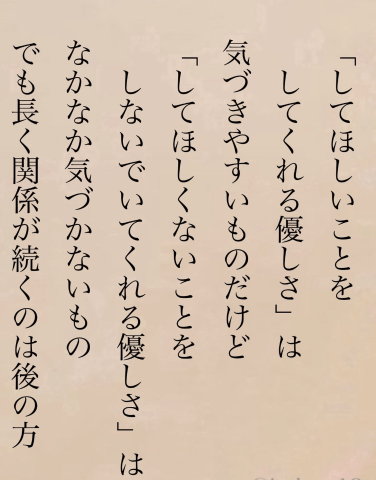 「してほしいことを
してくれる優しさ」は
気づきやすいものだけど
「してほしくないことを
しないでいてくれる優しさ」は
なかなか気づかないもの
でも長く関係が続くのは後の方